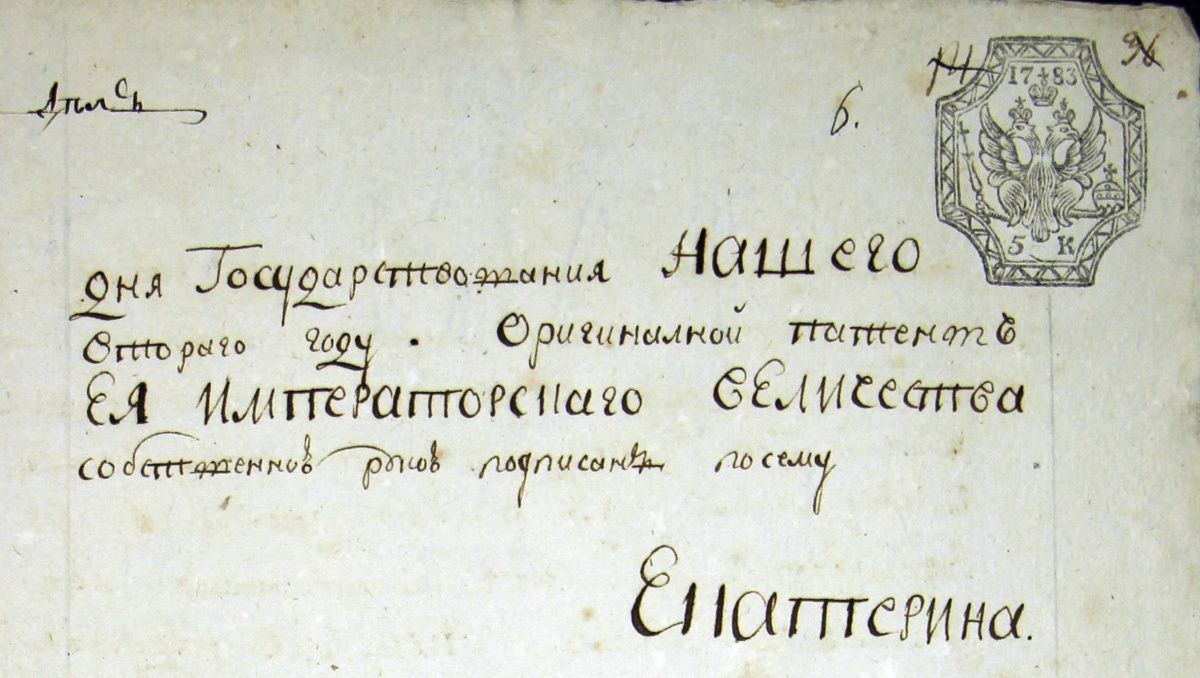 6.
36
1783
5 К
дня Государствования Нашего
второго году. Оригиналной патентъ
ЕЯ ИМПЕРАТОРСКАГО ВЕЛИЧЕСТВА
собственною рукою подписанъ по сему
Екатерина.